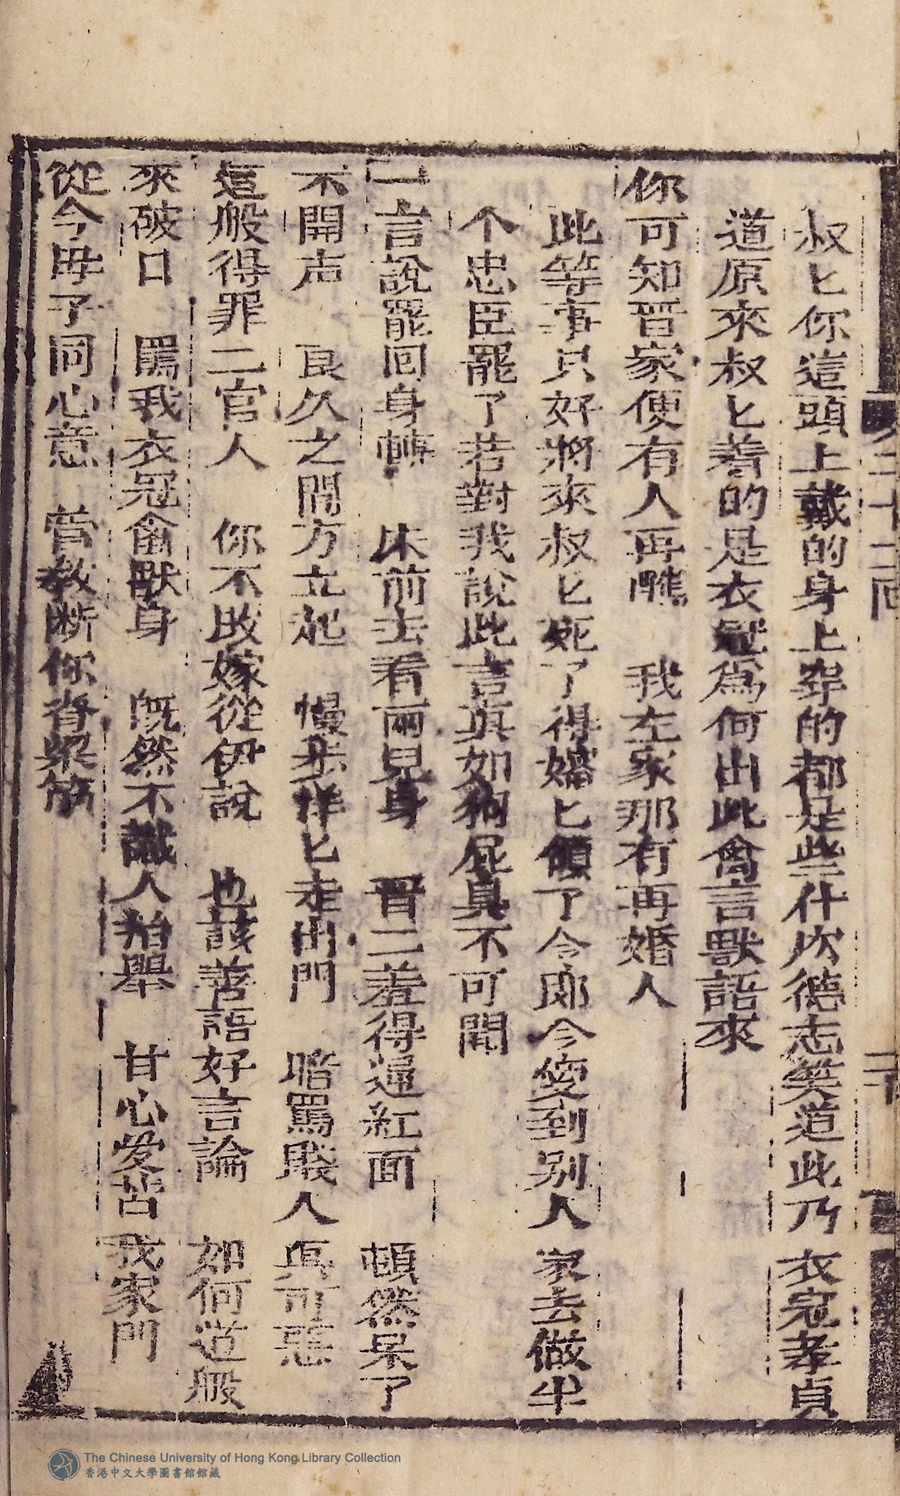 叔匕你這頭上戴的身上穿的都是些什広德志笑道此乃衣冠孝貞
道原來叔匕着的是衣冠爲何出此禽言獸語來
你可知晋家便有人再醮 我左家那有再婚人
此等事只好將來叔匕死了得嬸匕領了令郎令嫒到别人家去做半
个忠臣罷了若對我說此言真如狗屁真不可聞
一言說罷回身轉 床前去看兩兒身 晋二羞得逼紅面 頓然呆了
不開声 良久之間方立起 慢步徉匕走出門 暗罵賤人真可惡
這般得罪二官人 你不改嫁從伊說 也該善語好言論 如何這般
來破口 罵我衣冠禽獸身 旣然不識人抬舉 甘心受苦我家門
從今毋子同心意 管教断你脊梁筋
二十二回
The Chinese University of Hong Kong Library Collection
香港中文大學圖書館館藏